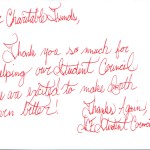 Charitable Funds,
Thank you so much for
helping our Student Council
We are excited to make
even better!
Thanks Again,
Student Council